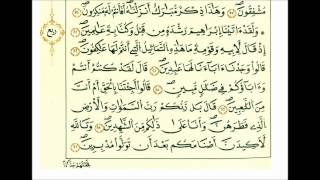 مُشْفِقُونَ وَهَٰذَا ذِكْرٌ مُّبَارَكٌ أَنزَلْنَٰهُ أَفَأَنتُمْ لَهُ مُنكِرُونَ
وَلَقَدْ ءَاتَيْنَا إِبْرَٰهِيمَ رُشْدَهُ مِن قَبْلُ وَكُنَّا بِهِ عَٰلِمِينَ
إِذْ قَالَ لِأَبِيهِ وَقَوْمِهِ مَا هَٰذِهِ ٱلتَّمَاثِيلُ ٱلَّتِي أَنتُمْ لَهَا عَٰكِفُونَ
قَالُوا وَجَدْنَا ءَابَآءَنَا لَهَا عَٰبِدِينَ قَالَ لَقَدْ كُنتُمْ أَنتُمْ
وَءَابَآؤُكُمْ فِي ضَلَٰلٍ مُّبِينٍ قَالُوا أَجِئْتَنَا بِٱلْحَقِّ أَمْ أَنتَ
مِنَ ٱللَّٰعِبِينَ قَالَ بَل رَّبُّكُمْ رَبُّ ٱلسَّمَٰوَٰتِ وَٱلْأَرْضِ
ٱلَّذِي فَطَرَهُنَّ وَأَنَا عَلَىٰ ذَٰلِكُم مِّنَ ٱلشَّٰهِدِينَ وَتَٱللَّهِ
لَأَكِيدَنَّ أَصْنَٰمَكُم بَعْدَ أَن تُوَلُّوا مُدْبِرِينَ